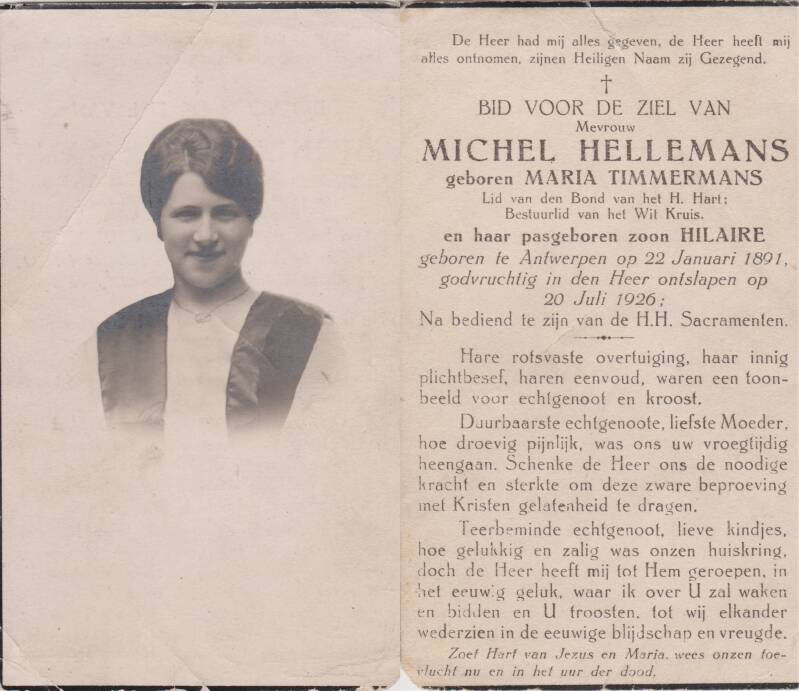 De Heer had mij alles gegeven, de Heer heeft mij
alles ontnomen, zijnen Heiligen Naam zij Gezegend.
†
BID VOOR DE ZIEL VAN
Mevrouw
MICHEL HELLEMANS
geboren MARIA TIMMERMANS
Lid van den Bond van het H. Hart;
Bestuurlid van het Wit Kruis.
en haar pasgeboren zoon HILAIRE
geboren te Antwerpen op 22 Januari 1891,
godvruchtig in den Heer ontslapen op
20 Juli 1926;
Na bediend te zijn van de H.H. Sacramenten.
Hare rotsvaste overtuiging, haar innig
plichtbesef, haren eenvoud, waren een toon-
beeld voor echtgenoot en kroost.
Duurbaarste echtgenoote, liefste Moeder,
hoe droevig pijnlijk, was ons uw vroegtijdig
heengaan. Schenke de Heer ons de noodige
kracht en sterkte om deze zware beproeving
met Kristen gelatenheid te dragen.
Teerbeminde echtgenoot, lieve kindjes,
hoe gelukkig en zalig was onzen huiskring,
doch de Heer heeft mij tot Hem geroepen, in
het eeuwig geluk, waar ik over U zal waken
en bidden en U troosten, tot wij elkander
wederzien in de eeuwige blijdschap en vreugde.
Zoet Hart van Jezus en Maria, wees onzen toe-
vlucht nu en in het uur der dood.